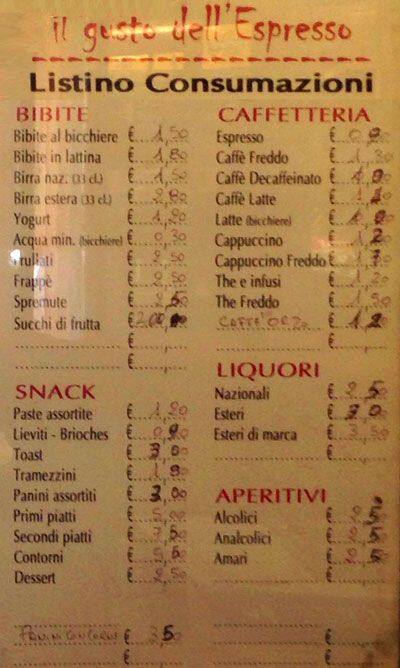 il gusto dell'Espresso
Listino Consumazioni
BIBITE
Bibite al bicchiere € 1,50
Bibite in lattina € 1,80
Birra naz. (33 cl.) € 1,50
Birra estera (33 cl.) € 2,80
Yogurt € 1,20
Acqua min. (bicchiere) € 0,30
Frullati € 2,50
Frappè € 2,50
Spremute € 2,50
Succhi di frutta € 2,00
€
€
SNACK
Paste assortite € 1,20
Lieviti - Brioches € 0,90
Toast € 3,00
Tramezzini €
Panini assortiti € 3,00
Primi piatti € 5,00
Secondi piatti €
Contorni €
Dessert € 2,50
€
€ 3,50
€
CAFFETTERIA
Espresso € 0,90
Caffè Freddo €
Caffè Decaffeinato € 1,00
Caffè Latte €
Latte (bicchiere) € 1,00
Cappuccino € 1,20
Cappuccino Freddo €
The e infusi € 1,20
The Freddo €
CAFFE' ORZO € 1,20
€
LIQUORI
Nazionali € 2,50
Esteri € 3,00
Esteri di marca € 3,50
€
APERITIVI
Alcolici € 2,50
Analcolici € 2,50
Amari € 2,50
€
€
€
€
€